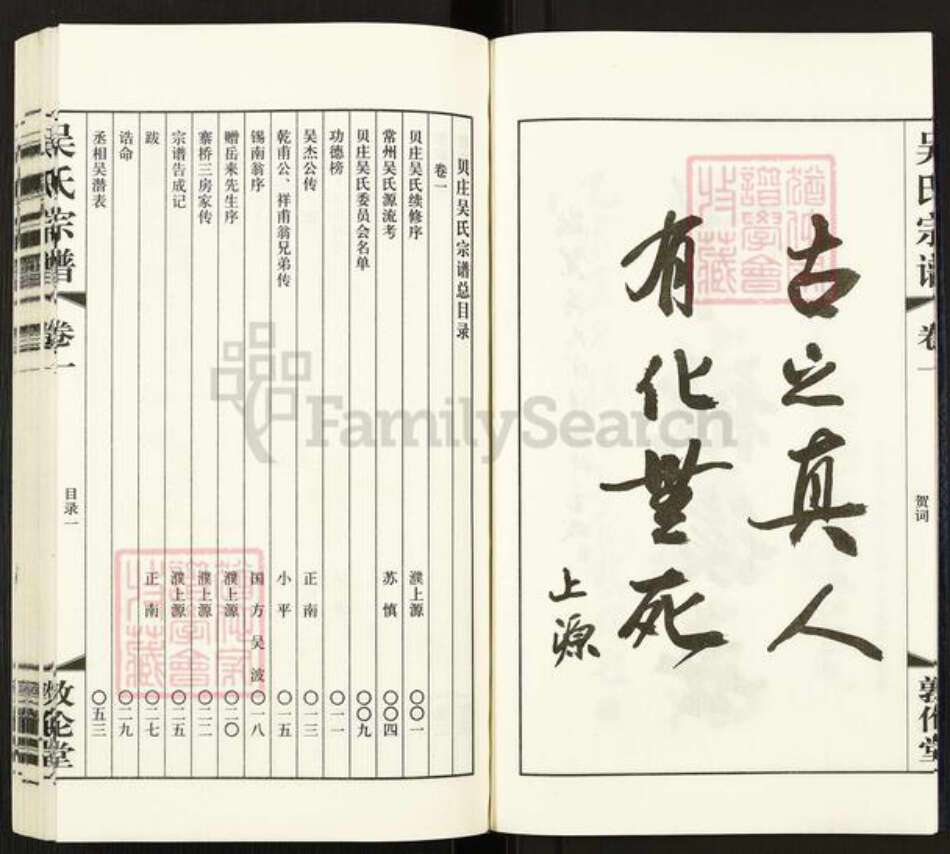 古之真人
有化無死
上源
吴氏宗谱
卷一
贺词
敦伦堂
贝庄吴氏宗谱总目录
卷一
贝庄吴氏续修序 濮上源 〇〇一
常州吴氏源流考 苏慎 〇〇四
贝庄吴氏委员会名单 〇〇九
功德榜 〇一一
吴杰公传 正南 〇一三
乾甫公、祥甫翁兄弟传 小平 〇一五
锡南翁序 国方 吴波 〇一八
赠岳来先生序 濮上源 〇二〇
寨桥三房家传 濮上源 〇二二
宗谱告成记 濮上源 〇二五
跋 正南 〇二七
诰命 〇二九
丞相吴潜表 〇五三
吴氏宗谱
卷一
目录一
敦伦堂
FamilySearch